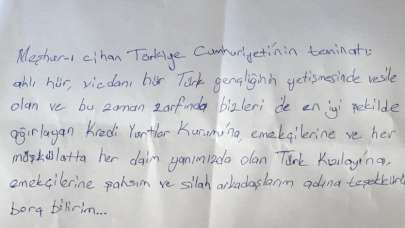 Mezher-i cihan Türkiye Cumhuriyeti'nin teminatı;
aklı hür, vicdanı hür Türk gençliğinin yetişmesinde vesile
olan ve bu zaman zarfında bizleri de en iyi şekilde
ağırlayan Kredi Yurtlar Kurumu'na, emekçilerine ve her
müşkülatta her daim yanımızda olan Türk Kızılayı'na,
emekçilerine şahsım ve silah arkadaşlarım adına teşekkürü
borç bilirim...